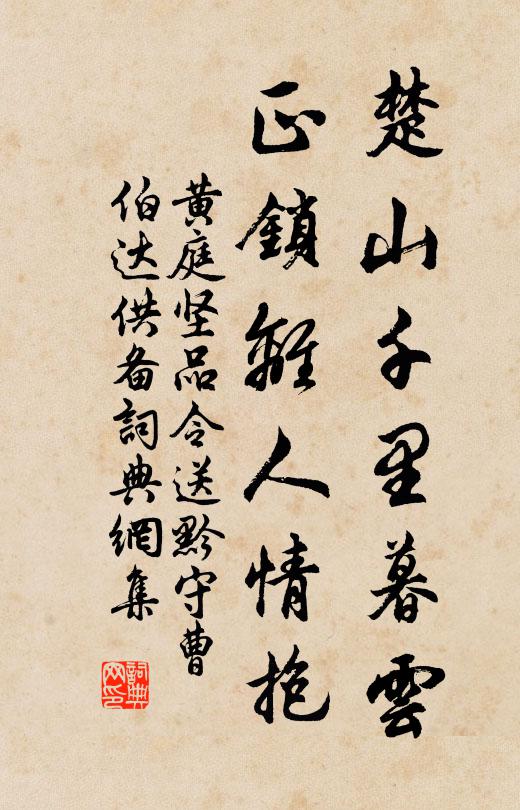 楚山千里暮雲
正鎖離人情抱
黄庭坚品令送黔守曹
伯达供备詞典網集
詞典網印